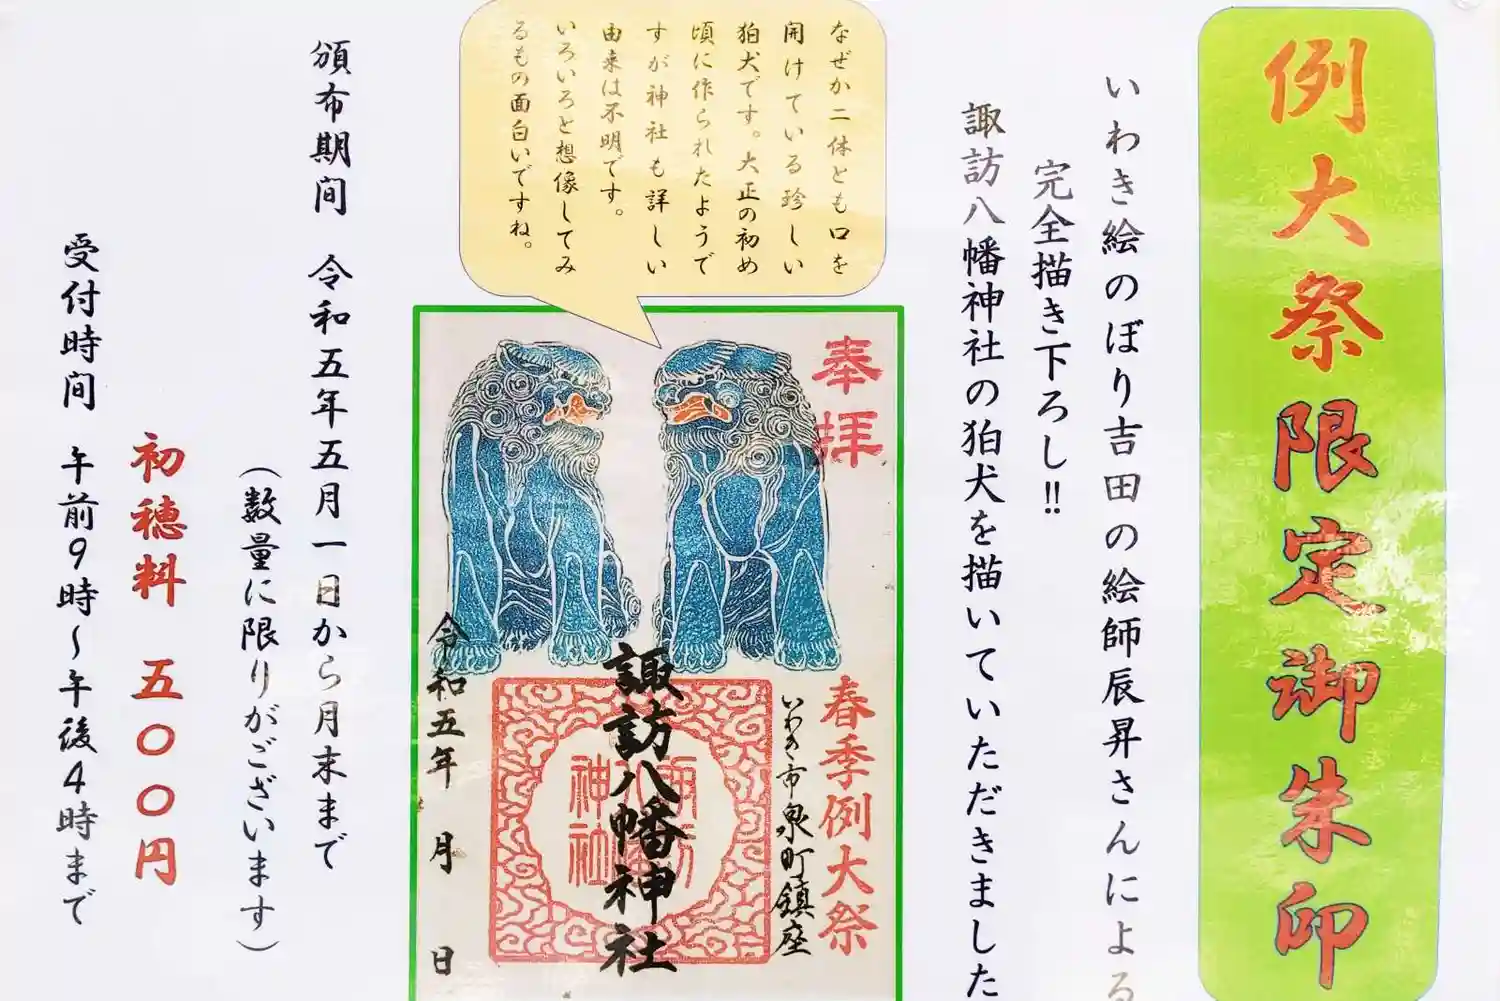 例大祭限定御朱印
いわき絵のぼり吉田の絵師辰昇さんによる
完全描き下ろし!!
諏訪八幡神社の狛犬を描いていただきました
なぜか二体とも口を
開けている珍しい
狛犬です。大正の初め
頃に作られたようで
すが神社も詳しい
由来は不明です。
いろいろと想像してみ
るもの面白いですね。
奉拝
春季例大祭
いわき市泉町鎮座
諏訪八幡神社
令和五年 月 日
頒布期间 令和五年五月一日から月末まで
(数量に限りがございます)
初穂料 五〇〇円
受付時间 午前9時~午後4時まで